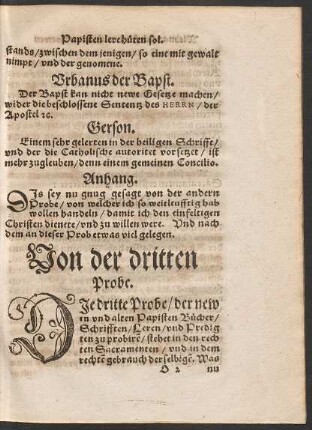 Papisten lere hüten sol.
stands/zwischen dem jenigen/so eine mit gewalt
nimpt/vnd der genomene.
Vrbanus der Bapst.
Der Bapst kan nicht newe Gesetze machen/
wider die beschlossene Sententz des HERRN/der
Apostel ⁊c.
Gerson.
Einem sehr gelerten in der heiligen Schrifft/
vnd der die Catholische autoritet vorsetzet/ist
mehr zugleuben/denn einem gemeinen Concilio.
Anhang.
DIs sey nu gnug gesagt von der andern
Probe/von welcher ich so weitleufftig hab
wollen handeln/damit ich den einfeltigen
Christen dienete/vnd zu willen were. Vnd nach
dem an dieser Prob etwas viel gelegen.
Von der dritten
Probe.
DIe dritte Probe/der new
en vnd alten Papisten Bücher/
Schrifften/Leren/vnd Predig
ten zu probirẽ/stehet in den rech
ten Sacramenten/vnd in dem
rechtẽ gebrauch derselbigẽ. Was
O 2 nu